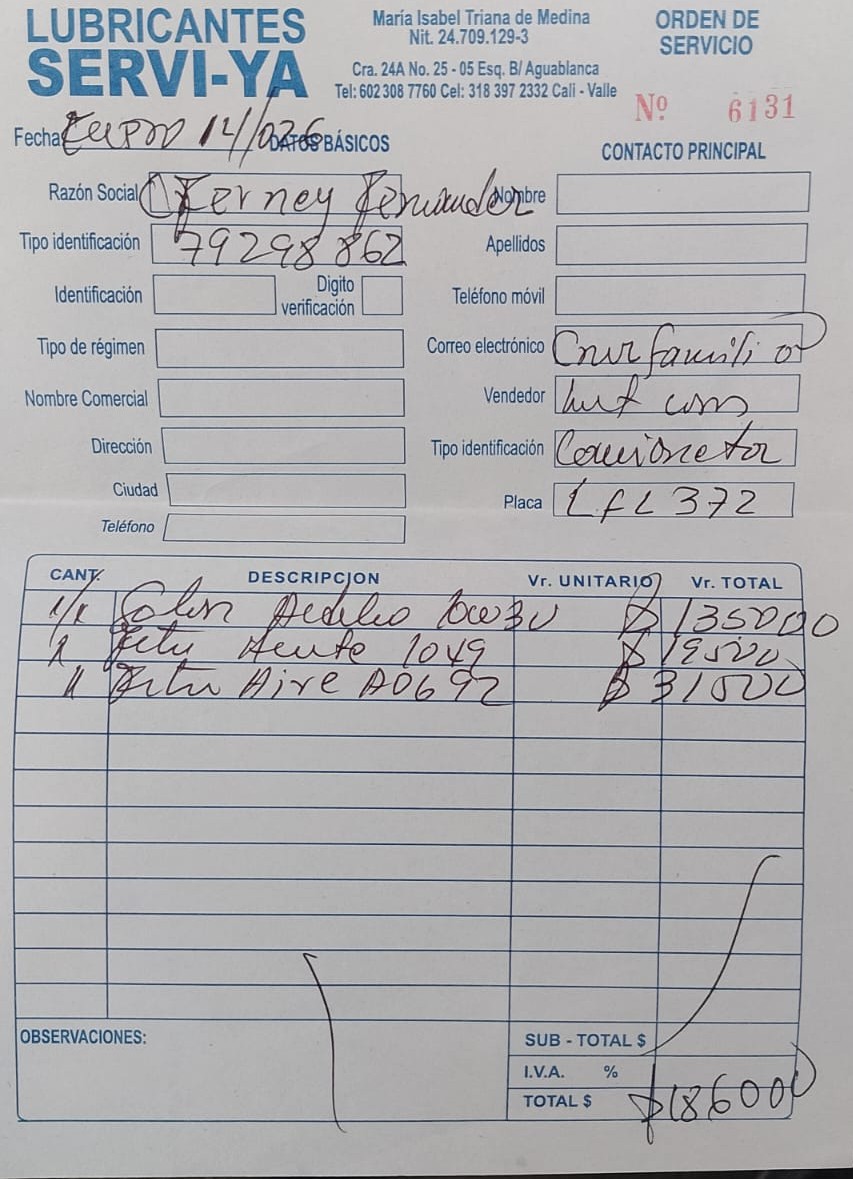 LUBRICANTES
SERVI-YA
María Isabel Triana de Medina
Nit. 24.709.129-3
Cra. 24A No. 25 - 05 Esq. B/ Aguablanca
Tel: 602 308 7760 Cel: 318 397 2332 Cali - Valle
ORDEN DE
SERVICIO
Nº 6131
Fecha Enero 14/026
DATOS BÁSICOS
CONTACTO PRINCIPAL
Razón Social Ferney Fernandez
Nombre
Tipo identificación 79298862
Apellidos
Identificación
Digito
verificación
Teléfono móvil
Tipo de régimen
Correo electrónico
Nombre Comercial
Vendedor
Dirección
Tipo identificación Camioneta
Ciudad
Placa LFL 372
Teléfono
CANT. DESCRIPCION Vr. UNITARIO Vr. TOTAL
1/1 10W30 $ 135000
1 1049 $ 19500
1 Aire A0692 $ 31500
OBSERVACIONES:
SUB - TOTAL $
I.V.A. %
TOTAL $ $186000